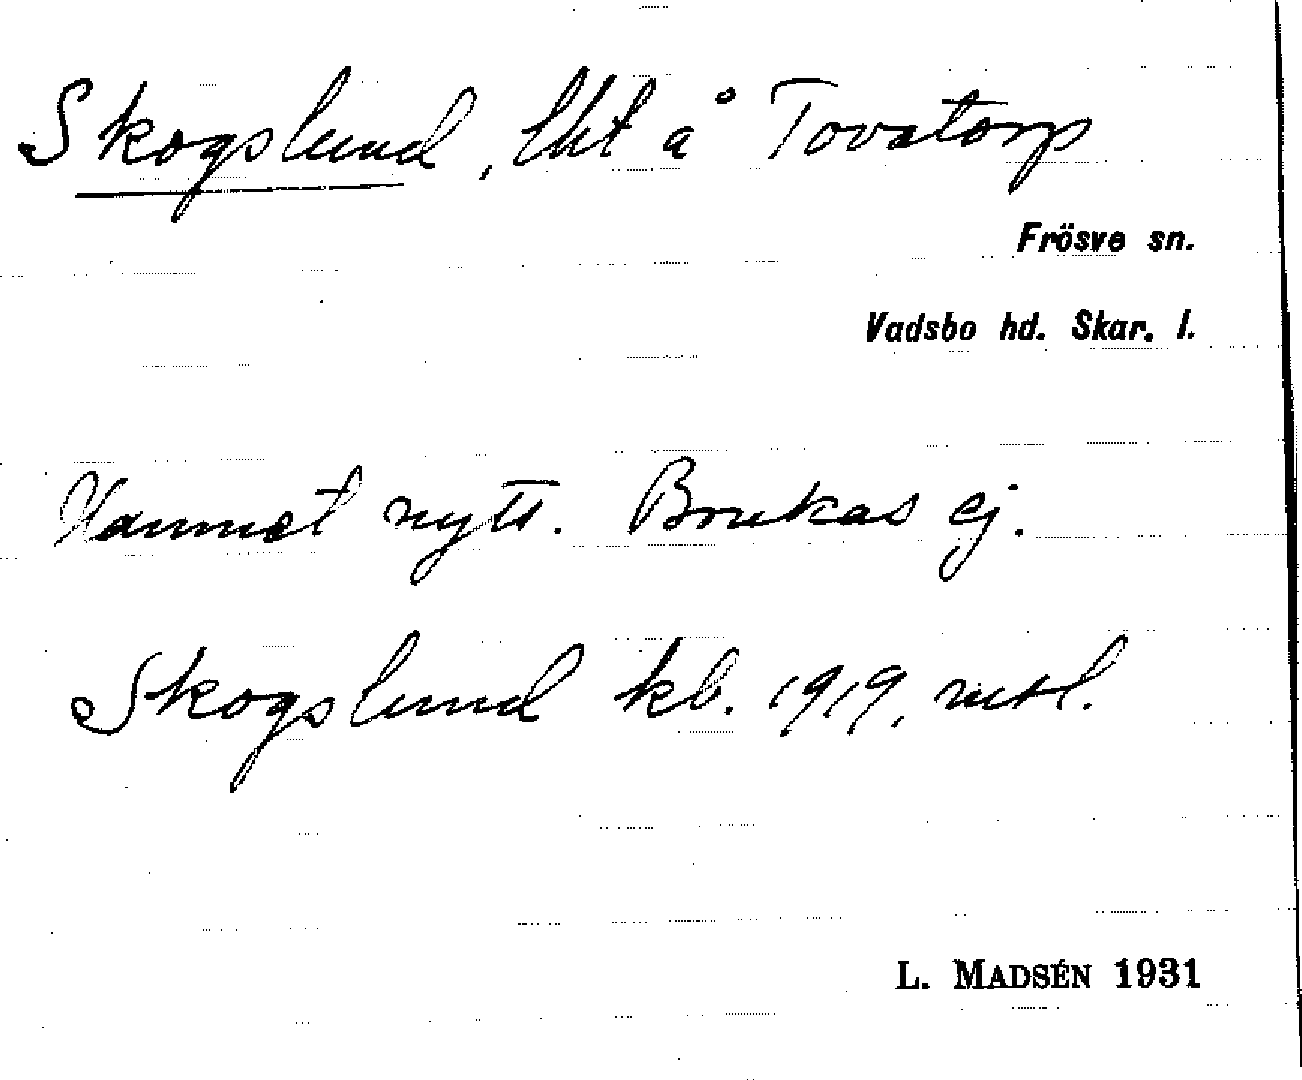 Skogslund, lht å Tovatorp
Frösve sn.
Vadsbo hd. Skar. l.
Namnet nytt. Brukas ej.
Skogslund kb. 1919, mtl.
L. MADSÉN 1931